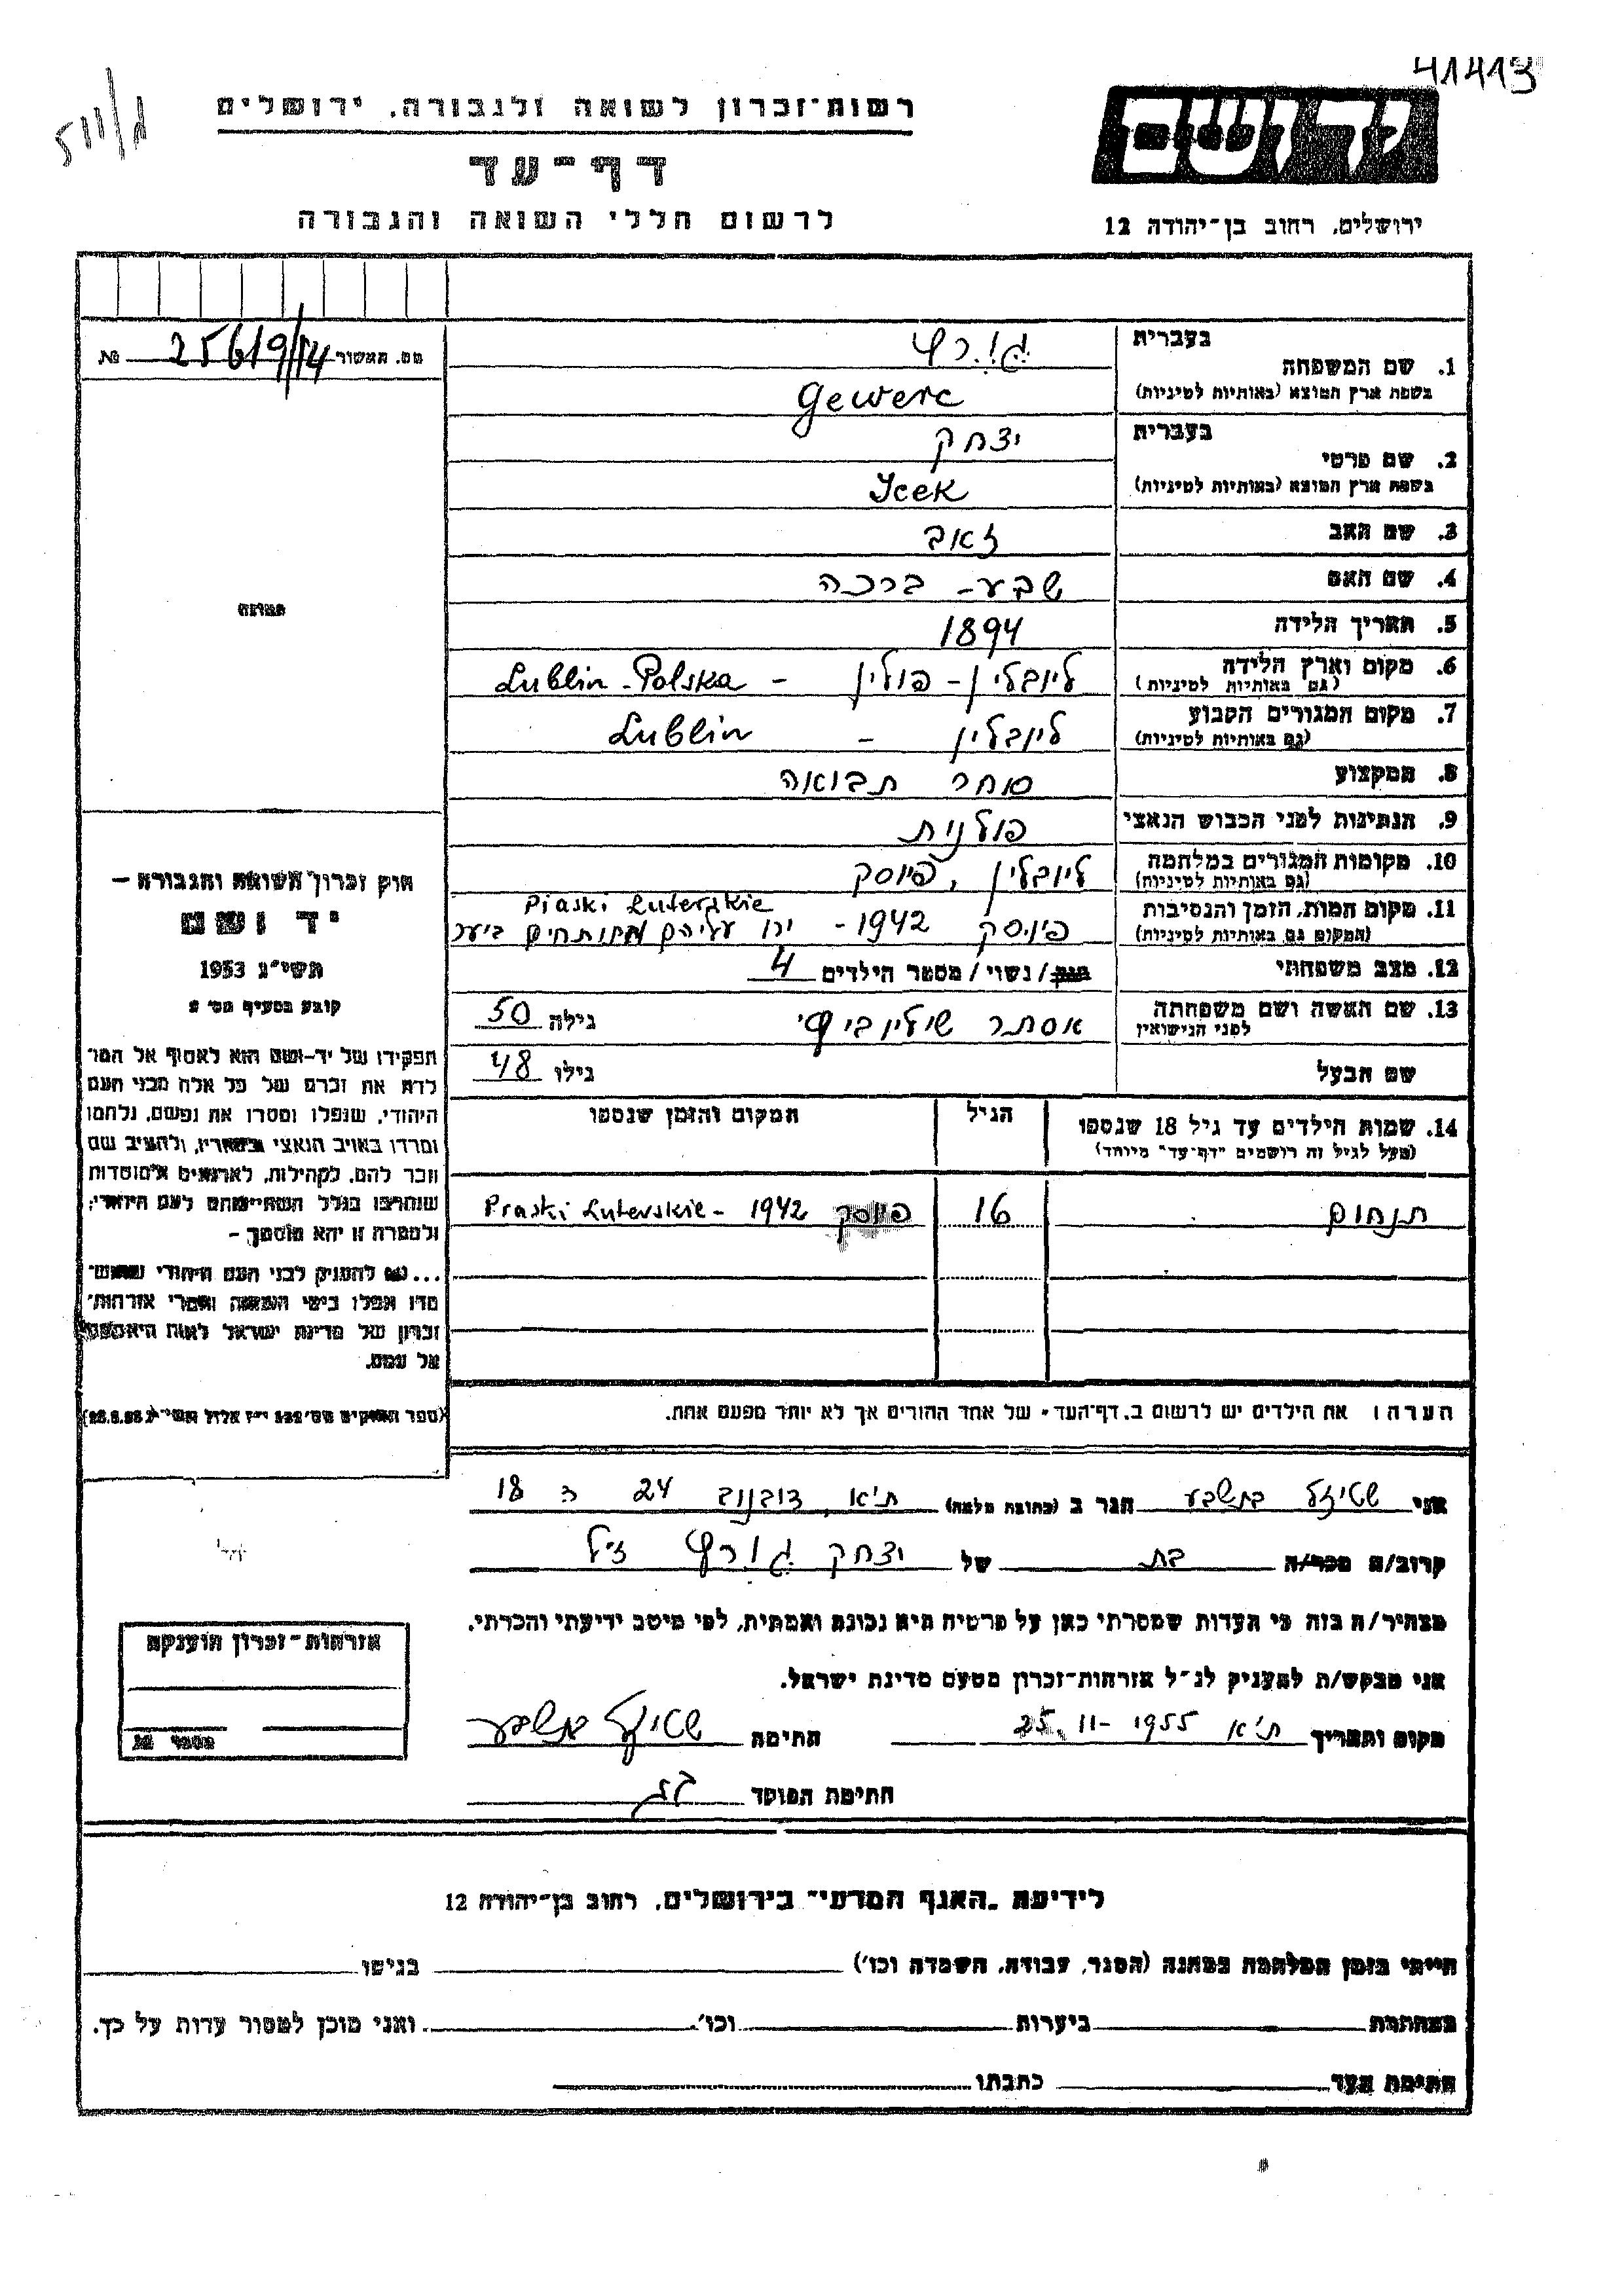 41413
רשות־זכרון לשואה ולגבורה, ירושלים
דף־עד
לרשום חללי השואה והגבורה
יד ושם
ירושלים, רחוב בן־יהודה 12
מס. האשור 25619/54 №
בעברית
1. שם המשפחה
גוירץ
בשפת ארץ המוצא (באותיות לטיניות)
Gewerc
בעברית
2. שם פרטי
יצחק
בשפת ארץ המוצא (באותיות לטיניות)
Icek
3. שם האב זאב
4. שם האם שבע - ברכה
5. תאריך הלידה 1894
6. מקום וארץ הלידה
(גם באותיות לטיניות)
ליובלין - פולין - Lublin - Polska
7. מקום המגורים הקבוע
(גם באותיות לטיניות)
ליובלין - Lublin
8. המקצוע סוחר תבואה
9. הנתינות לפני הכבוש הנאצי פולנית
10. מקומות המגורים במלחמה
(גם באותיות לטיניות)
ליובלין, פיוסק
Piaski Luterskie
11. מקום המות, הזמן והנסיבות
(המקום גם באותיות לטיניות)
פיוסק 1942 - ירו עליהם ביער
12. מצב משפחתי רווק/ נשוי/ מספר הילדים 4
13. שם האשה ושם משפחתה
לפני הנישואין
אסתר גילה 50
שם הבעל גילו 48
14. שמות הילדים עד גיל 18 שנספו
(מעל לגיל זה רושמים "דף־עד" מיוחד)
הגיל
המקום והזמן שנספו
תנחום 16 פיוסק 1942 - Piaski Luterskie
הערה: את הילדים יש לרשום ב"דף־העד" של אחד ההורים אך לא יותר מפעם אחת.
תמונה
חוק זכרון השואה והגבורה –
יד ושם
תשי"ג 1953
קובע בסעיף מס' 2
תפקידו של יד־ושם הוא לאסוף אל המו־
לדת את זכרם של כל אלה מבני העם
היהודי, שנפלו ומסרו את נפשם, נלחמו
ומרדו באויב הנאצי ובעוזריו, ולהציב שם
וזכר להם, לקהילות, לארגונים ולמוסדות
שנחרבו בגלל השתייכותם לעם היהודי;
ולמטרה זו יהא מוסמך –
...(ט) להעניק לבני העם היהודי שהוש־
מדו אזרחות־
זכרון של מדינת ישראל לאות היאספם
אל עמם.
אני בתשבע הגר ב (כתובת מלאה) ת"א, דובנוב 24 ד 18
קרוב/ה מכר/ה בת של יצחק גוירץ ז"ל
מצהיר/ה בזה כי העדות שמסרתי כאן על פרטיה היא נכונה ואמתית, לפי מיטב ידיעתי והכרתי.
אני מבקש/ת להעניק לנ"ל אזרחות־זכרון מטעם מדינת ישראל.
מקום ותאריך ת"א 25.11-1955 חתימה
חתימת הפוקד
אזרחות־זכרון הוענקה
לידיעת "האגף המדעי" בירושלים, רחוב בן־יהודה 12
הייתי בזמן המלחמה במחנה (הסגר, עבודה, השמדה וכו') בגיטו
במחתרת ביערות וכו' ואני מוכן למסור עדות על כך.
חתימת העד כתבתו